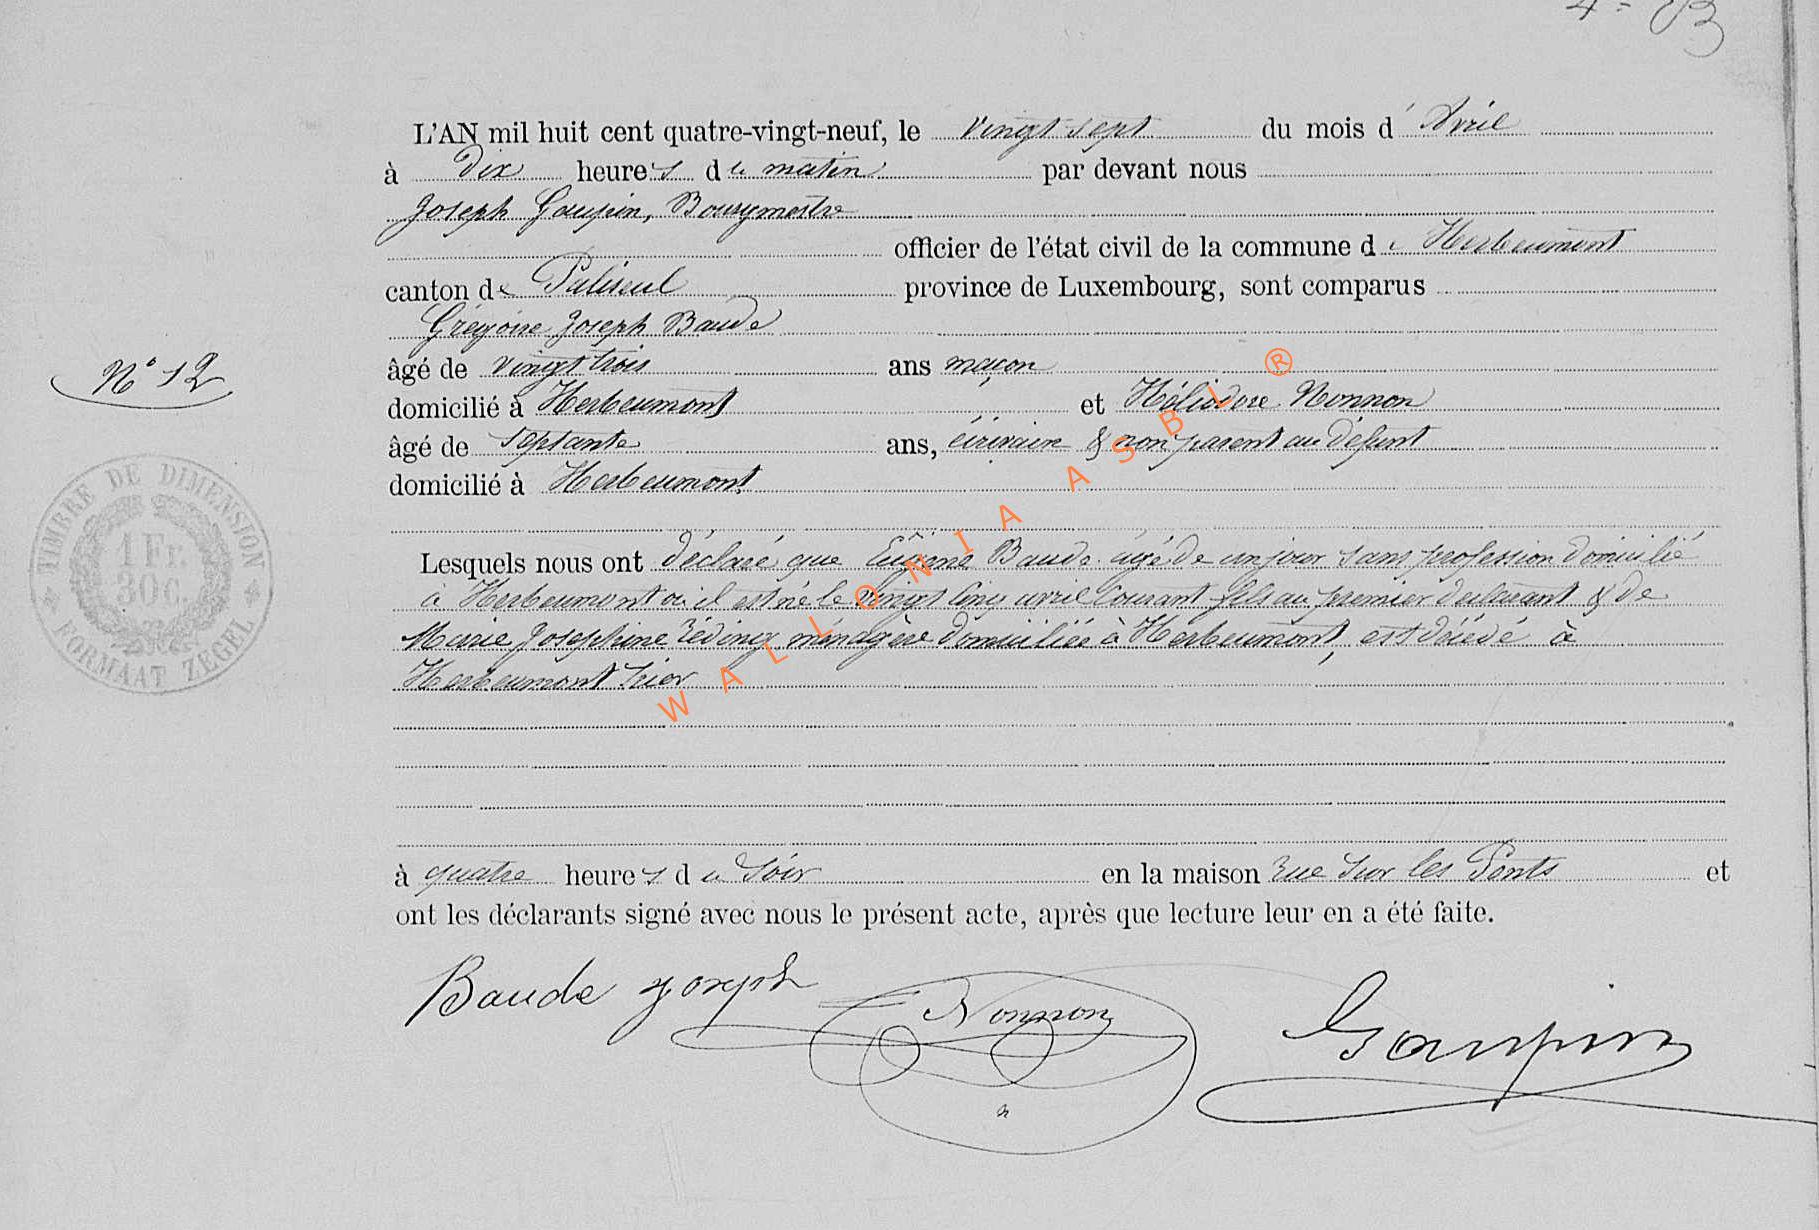 4 = B
L'AN mil huit cent quatre-vingt-neuf, le vingt sept du mois d'Avril
à Dix heures du matin par devant nous
Joseph Goupin, Bourgmestre
officier de l'état civil de la commune de Herbeumont
canton de Paliseul province de Luxembourg, sont comparus
Grégoire Joseph Baude
âgé de vingt trois ans maçon
N° 12
domicilié à Herbeumont et Héliodore Nonnon
âgé de septante ans, écrivain & non parent au défunt
domicilié à Herbeumont
Lesquels nous ont déclaré que Eugène Baude âgé de un jour sans profession domicilié
à Herbeumont où il est né le vingt cinq avril courant fils au premier déclarant & de
Marie Josephine Réding ménagère domiciliée à Herbeumont, est décédé à
Herbeumont hier
à quatre heures du soir en la maison rue sur les Ponts et
ont les déclarants signé avec nous le présent acte, après que lecture leur en a été faite.
Baude Joseph Nonnon Goupin
TIMBRE DE DIMENSION
1 Fr.
30c.
FORMAAT ZEGEL
WALLONIA ASBL ®